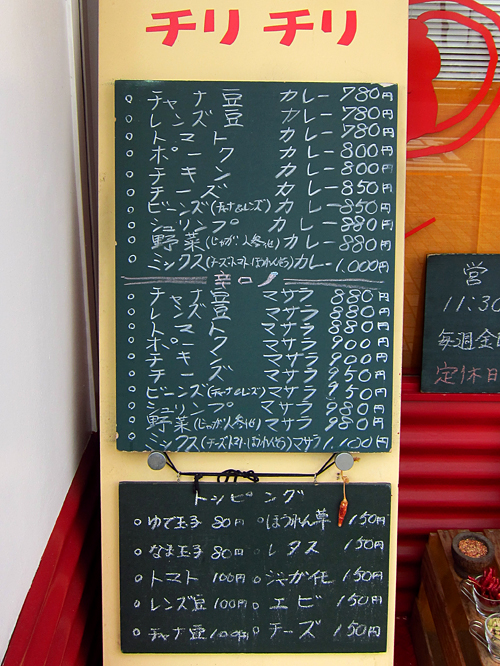 チリ チリ
○ チャナ豆 カレー 780円
○ レンズ豆 カレー 780円
○ トマト カレー 780円
○ ポーク カレー 800円
○ チキン カレー 800円
○ チーズ カレー 850円
○ ビーンズ(チャナ&レンズ) カレー 850円
○ シュリンプ カレー 880円
○ 野菜(じゃが人参なせ) カレー 880円
○ ミックス(チーズ・トマト・ほうれんそう) カレー 1,000円
辛口
○ チャナ豆 マサラ 880円
○ レンズ豆 マサラ 880円
○ トマト マサラ 880円
○ ポーク マサラ 900円
○ チキン マサラ 900円
○ チーズ マサラ 950円
○ ビーンズ(チャナ&レンズ) マサラ 950円
○ シュリンプ マサラ 980円
○ 野菜(じゃが人参なせ) マサラ 980円
○ ミックス(チーズ・トマト・ほうれんそう) マサラ 1,100円
トッピング
○ ゆで玉子 80円 ○ ほうれん草 150円
○ なま玉子 80円 ○ レタス 150円
○ トマト 100円 ○ じゃが芋 150円
○ レンズ豆 100円 ○ エビ 150円
○ チャナ豆 100円 ○ チーズ 150円
営
11:30
毎週金
定休日